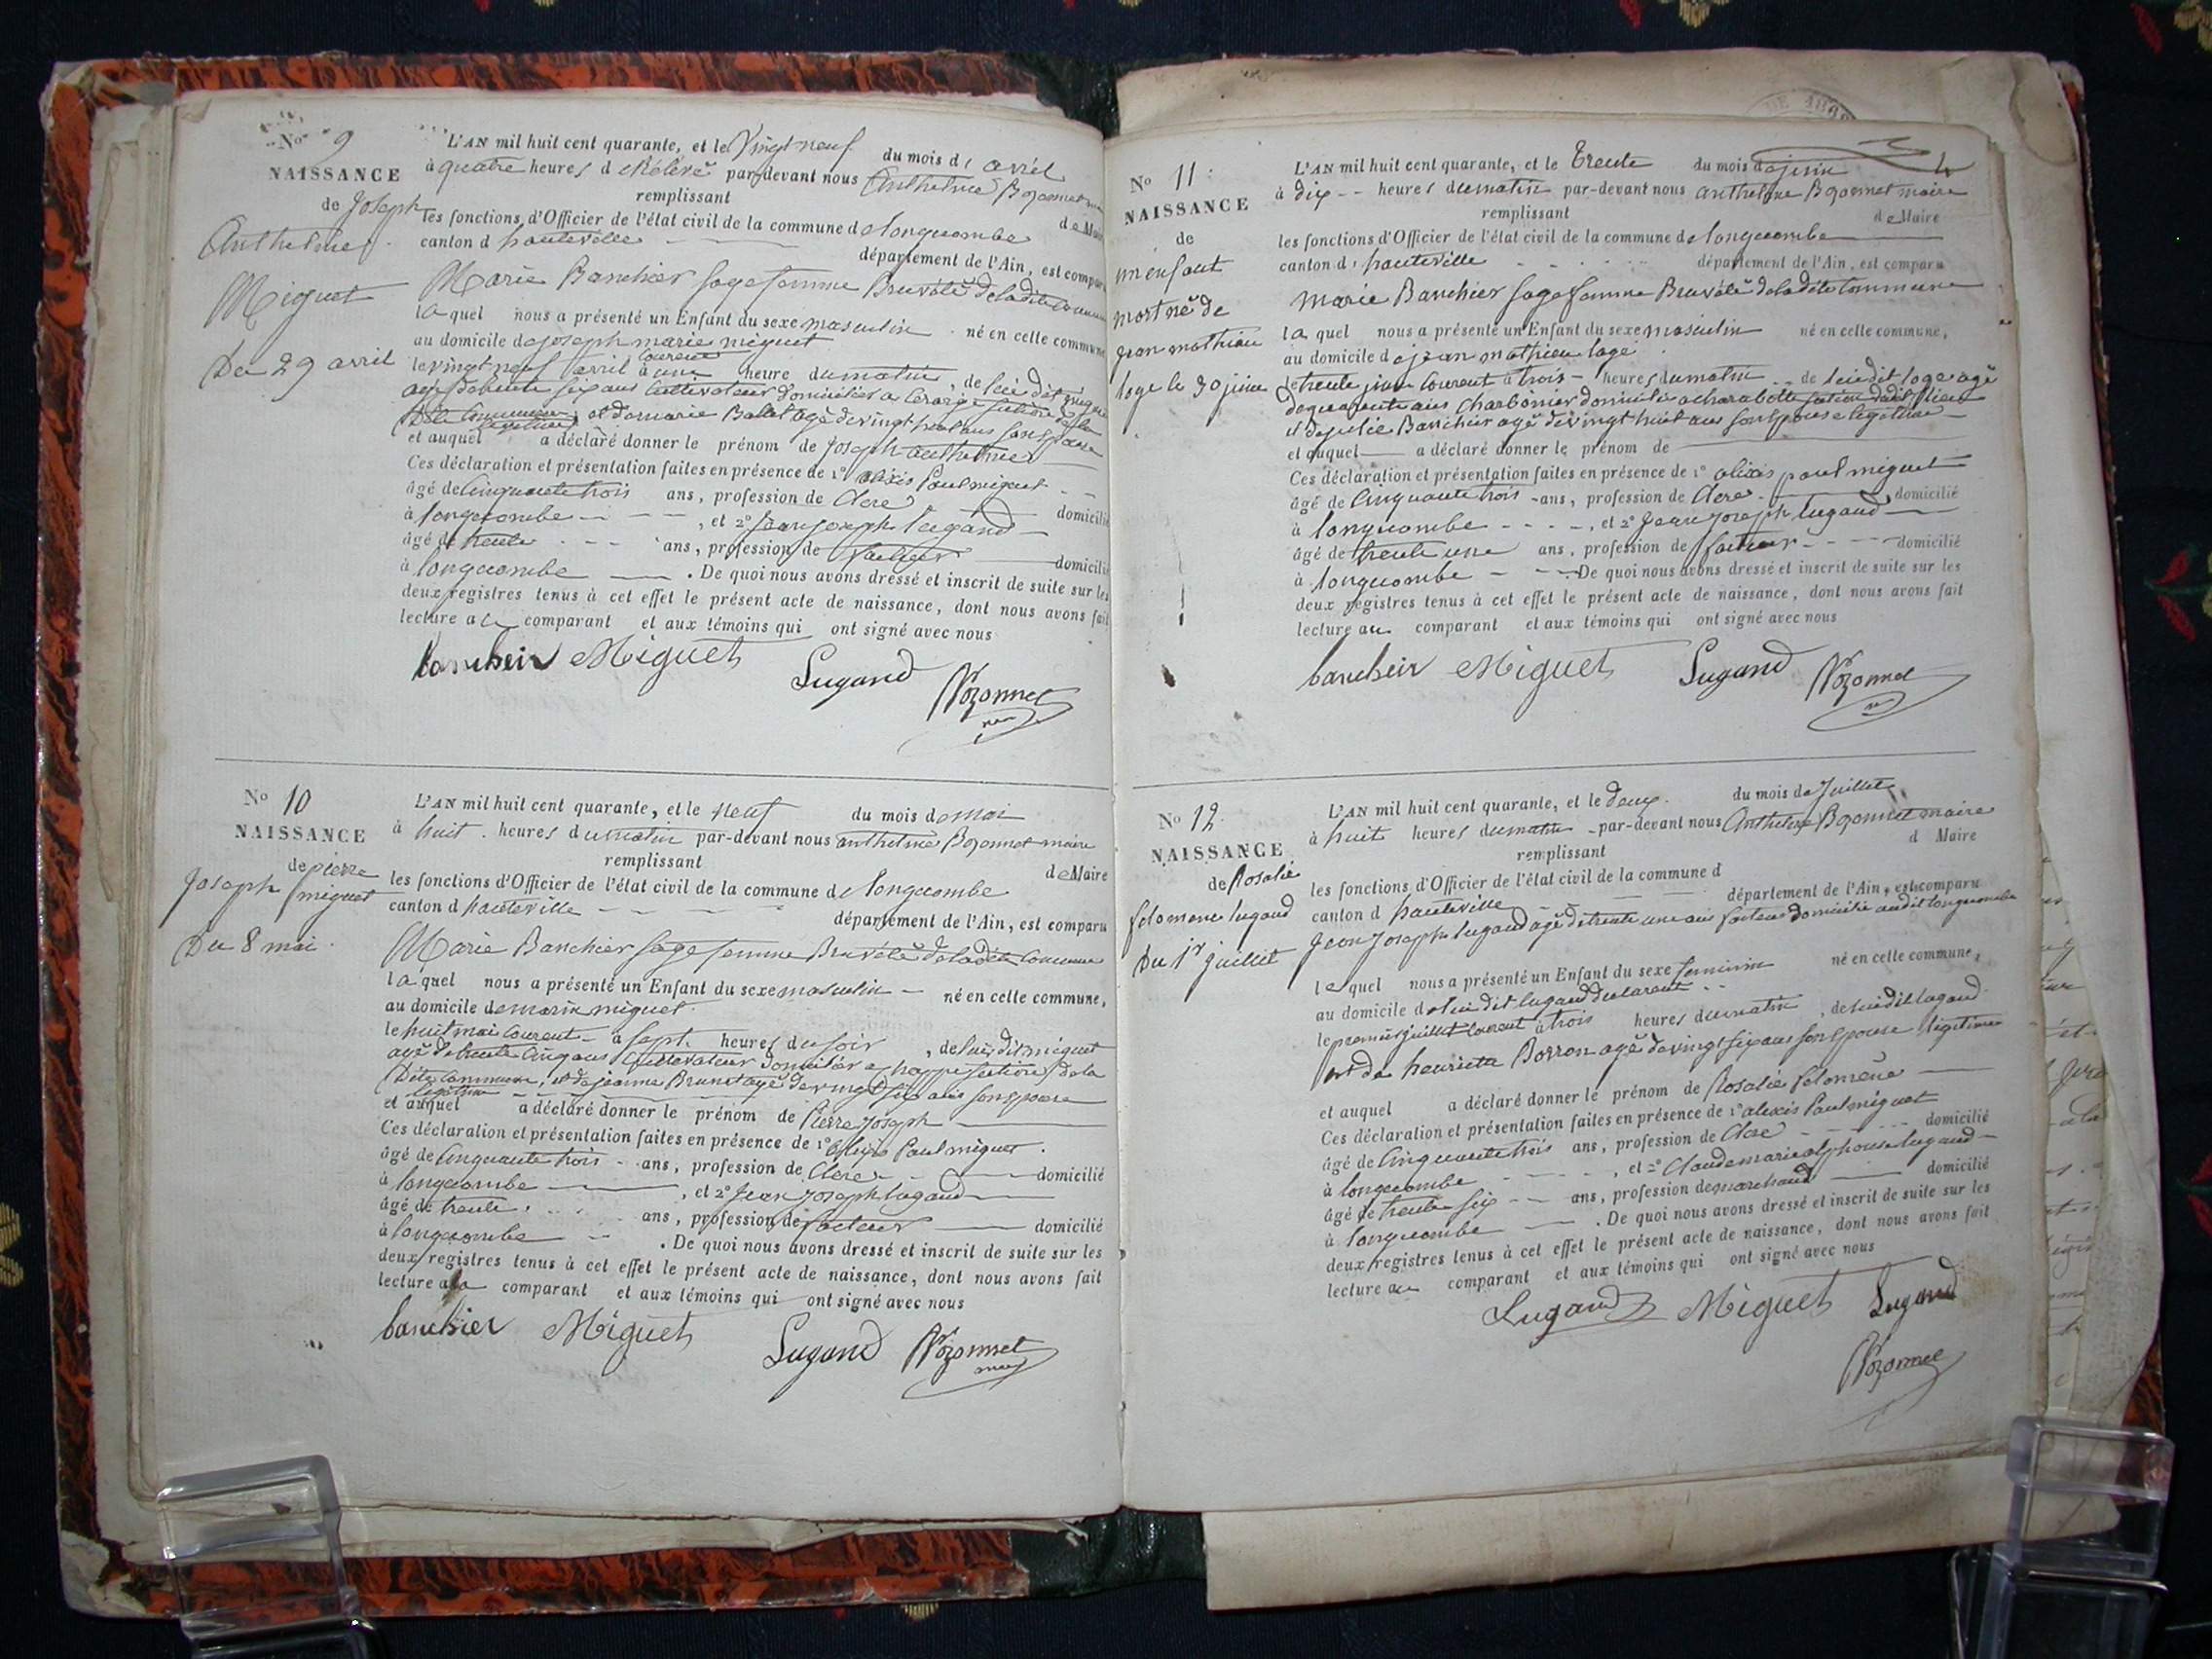 No 9
NAISSANCE
de Joseph
Anthelme
Miguet
Du 29 avril
L'AN mil huit cent quarante, et le Vingt neuf du mois d avril
à quatre heures d par-devant nous Anthelme Bozonnet
remplissant de Maire
les fonctions d'Officier de l'état civil de la commune de longecombe
canton d hauteville département de l'Ain, est comparu
Marie Banchier sage femme Brevété de la dite Commune
la quel nous a présenté un Enfant du sexe masculin né en cette commune
au domicile de joseph marie miguet
le vingt neuf avril courent à une heure du matin, de lui dit miguet
agé de trente six ans Cultivateur domicilié a section de la
dite Commune, et de marie Ballet agé de vingt huit ans son epouse
legitime
et auquel a déclaré donner le prénom de Joseph anthelme
Ces déclaration et présentation faites en présence de 1° alixis Paul miguet
âgé de Cinquante trois ans, profession de Clerc domicilié
à longecombe, et 2° Jean joseph lugand
âgé de trente ans, profession de facteur domicilié
à longecombe. De quoi nous avons dressé et inscrit de suite sur les
deux registres tenus à cet effet le présent acte de naissance, dont nous avons fait
lecture a la comparant et aux témoins qui ont signé avec nous
banchier Miguet Lugand Bozonnet
No 10
NAISSANCE
de pierre
Joseph miguet
Du 8 mai
L'AN mil huit cent quarante, et le neuf du mois de mai
à huit heures du matin par-devant nous anthelme Bozonnet maire
remplissant de Maire
les fonctions d'Officier de l'état civil de la commune de longecombe
canton d hauteville département de l'Ain, est comparu
Marie Banchier sage femme Brevété de la dite Commune
la quel nous a présenté un Enfant du sexe masculin né en cette commune,
au domicile de marin miguet
le huit mai Courent à sept heures du soir, de lui dit miguet
agé de trente Cinq ans Cultivateur domicilié a section de la
dite Commune, et de jeanne Brunet agé de vingt six ans son epouse
legitime
et auquel a déclaré donner le prénom de Pierre Joseph
Ces déclaration et présentation faites en présence de 1° alexis Paul miguet
âgé de Cinquante trois ans, profession de Clerc domicilié
à longecombe, et 2° Jean Joseph lugand
âgé de trente ans, profession de facteur domicilié
à longecombe. De quoi nous avons dressé et inscrit de suite sur les
deux registres tenus à cet effet le présent acte de naissance, dont nous avons fait
lecture a la comparant et aux témoins qui ont signé avec nous
banchier Miguet Lugand Bozonnet
No 11
NAISSANCE
de
un enfant
mort né de
jean mathieu
loge le 30 juin
L'AN mil huit cent quarante, et le trente du mois de juin
à dix heures du matin par-devant nous anthelme Bozonnet maire
remplissant de Maire
les fonctions d'Officier de l'état civil de la commune de longecombe
canton d hauteville département de l'Ain, est comparu
Marie Banchier sage femme Brevété de la dite Commune
la quel nous a présenté un Enfant du sexe masculin né en cette commune,
au domicile de jean mathieu loge
le trente juin Courent à trois heures du matin de lui dit loge agé
de quarante ans Charbonier domicilié a charabotte section dudit lieu
et de julie Banchier agé de vingt huit ans son epouse legitime
et auquel a déclaré donner le prénom de
Ces déclaration et présentation faites en présence de 1° alixis paul miguet
âgé de Cinquante trois ans, profession de Clerc domicilié
à longecombe, et 2° Jean joseph lugand
âgé de trente une ans, profession de facteur domicilié
à longecombe De quoi nous avons dressé et inscrit de suite sur les
deux registres tenus à cet effet le présent acte de naissance, dont nous avons fait
lecture au comparant et aux témoins qui ont signé avec nous
banchier Miguet Lugand Bozonnet
No 12
NAISSANCE
de Rosalie
felomene lugand
Du 1r juillet
L'AN mil huit cent quarante, et le deux du mois de Juillet
à huit heures du matin par-devant nous Anthelme Bozonnet maire
remplissant d Maire
les fonctions d'Officier de l'état civil de la commune d
canton d hauteville département de l'Ain, est comparu
Jean Joseph lugand agé de trente une ans facteur domicilié audit longecombe
le quel nous a présenté un Enfant du sexe feminin né en cette commune,
au domicile de lui dit lugand declarent
le premier juillet Courent à trois heures du matin, de lui dit lugand
et de henriette Borron agé de vingt six ans son epouse legitime
et auquel a déclaré donner le prénom de Rosalie felomene
Ces déclaration et présentation faites en présence de 1° alexis Paul miguet
âgé de Cinquante trois ans, profession de Clerc domicilié
à longecombe, et 2° Claude marie alphonse lugand
âgé de trente six ans, profession de marchand domicilié
à longecombe. De quoi nous avons dressé et inscrit de suite sur les
deux registres tenus à cet effet le présent acte de naissance, dont nous avons fait
lecture au comparant et aux témoins qui ont signé avec nous
Lugand Miguet Lugand
Bozonnet